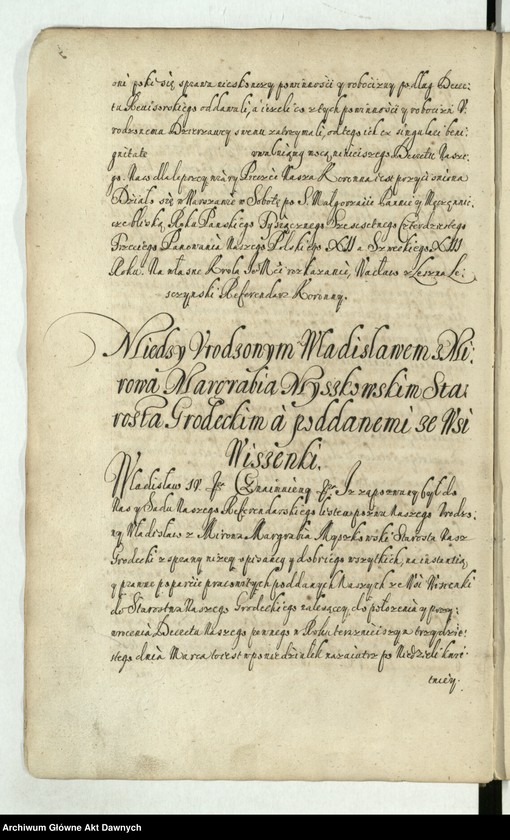 oni poki się sprawa nieskonczy powinności y robocizny podług Decre:
tu Rewisorskiego oddawali, a ieżeli co z tych powinności y robocizn U
rodzonemu Dzierzawcy swemu zatrzymali, od tego ich ex singulari beni
gnitate uwalniamy mocą ninieiszego Decretu Nasze
go. Na co dla lepszey wiary Pieczęć Nasza Koronna iest przyciśniona
Działo się w Warszawie w Sobotę po S. Małgorzacie Pannie y Męczenni
cze bliską, Roku Pańskiego Tysiącznego Szescsetnego Czterdziestego
Trzeciego Panowania Naszego Polskiego XII a Szwedzkiego XIII
Roku. Na własne Krola Je Mci roskazanie, Wacław z Leszna Le:
szczynski Referendarz Koronny.
Między Urodzonym Władisławem z Mi:
rowa Margrabią Myszkowskim Sta:
rostą Grodeckim à poddanemi ze Wsi
Wissenki.
Władisław IV etc. Oznaimuiemy etc. Iż zapozwany był do
Nas y Sądu Naszego Referendarskiego listem pozwu Naszego Urodzo:
ny Władisław z Mirowa Margrabia Myszkowski Starosta Nasz
Grodecki z sprawy niżey opisaney y dobr iego wszytkich, na instantią
y prawne poparcie pracowitych poddanych Naszych ze Wsi Wissenki
do Starostwa Naszego Grodeckiego należącey, do położenia y przy:
wrocenia Decretu Naszego pewnego w Roku teraznieiszym trzydzie:
stego dnia Marca to iest w poniedziałek nazaiutrz po Niedzieli kwie
tniey.
Archiwum Główne Akt Dawnych